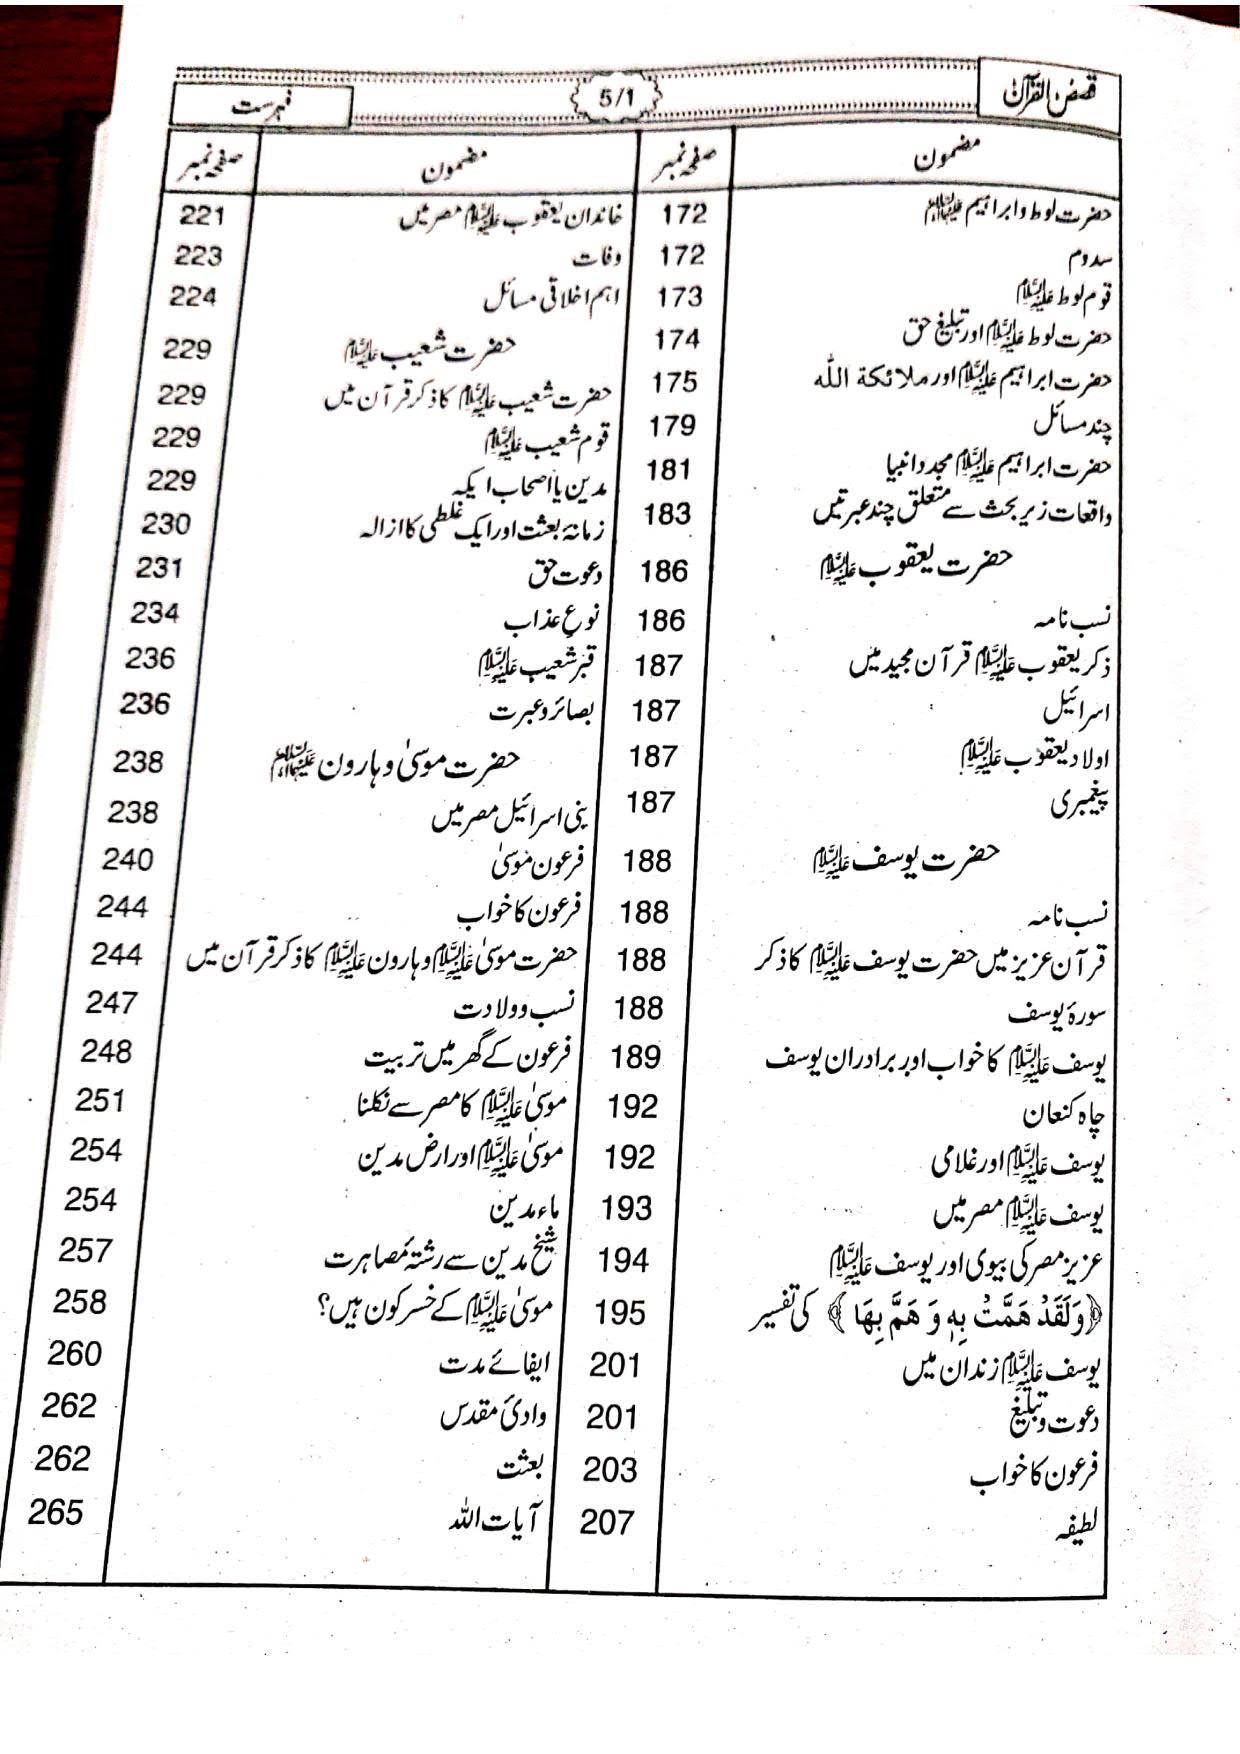 قصص القرآن
5/1
فہرست
مضمون صفحہ نمبر
حضرت لوط و ابراہیم علیہما السلام 172
سدوم 172
قوم لوط علیہ السلام 173
حضرت لوط علیہ السلام اور تبلیغ حق 174
حضرت ابراہیم علیہ السلام اور ملائکۃ اللہ 175
چند مسائل 179
حضرت ابراہیم علیہ السلام مجدد انبیا 181
واقعات زیر بحث سے متعلق چند عبرتیں 183
حضرت یعقوب علیہ السلام 186
نسب نامہ 186
ذکر یعقوب علیہ السلام قرآن مجید میں 187
اسرائیل 187
اولاد یعقوب علیہ السلام 187
پیغمبری 187
حضرت یوسف علیہ السلام 188
نسب نامہ 188
قرآن عزیز میں حضرت یوسف علیہ السلام کا ذکر 188
سورۂ یوسف 188
یوسف علیہ السلام کا خواب اور برادران یوسف 189
چاہ کنعان 192
یوسف علیہ السلام اور غلامی 192
یوسف علیہ السلام مصر میں 193
عزیز مصر کی بیوی اور یوسف علیہ السلام 194
﴿وَلَقَدْ هَمَّتْ بِهٖ وَ هَمَّ بِهَا﴾ کی تفسیر 195
یوسف علیہ السلام زندان میں 201
دعوت و تبلیغ 201
فرعون کا خواب 203
لطیفہ 207
مضمون صفحہ نمبر
خاندان یعقوب علیہ السلام مصر میں 221
وفات 223
اہم اخلاقی مسائل 224
حضرت شعیب علیہ السلام 229
حضرت شعیب علیہ السلام کا ذکر قرآن میں 229
قوم شعیب علیہ السلام 229
مدین یا اصحاب ایکہ 229
زمانۂ بعثت اور ایک غلطی کا ازالہ 230
دعوت حق 231
نوعِ عذاب 234
قبر شعیب علیہ السلام 236
بصائر و عبرت 236
حضرت موسیٰ و ہارون علیہما السلام 238
بنی اسرائیل مصر میں 238
فرعون موسیٰ 240
فرعون کا خواب 244
حضرت موسیٰ علیہ السلام و ہارون علیہ السلام کا ذکر قرآن میں 244
نسب و ولادت 247
فرعون کے گھر میں تربیت 248
موسیٰ علیہ السلام کا مصر سے نکلنا 251
موسیٰ علیہ السلام اور ارض مدین 254
ماء مدین 254
شیخ مدین سے رشتۂ مصاہرت 257
موسیٰ علیہ السلام کے خسر کون ہیں؟ 258
ایفائے مدت 260
وادیٔ مقدس 262
بعثت 262
آیات اللہ 265